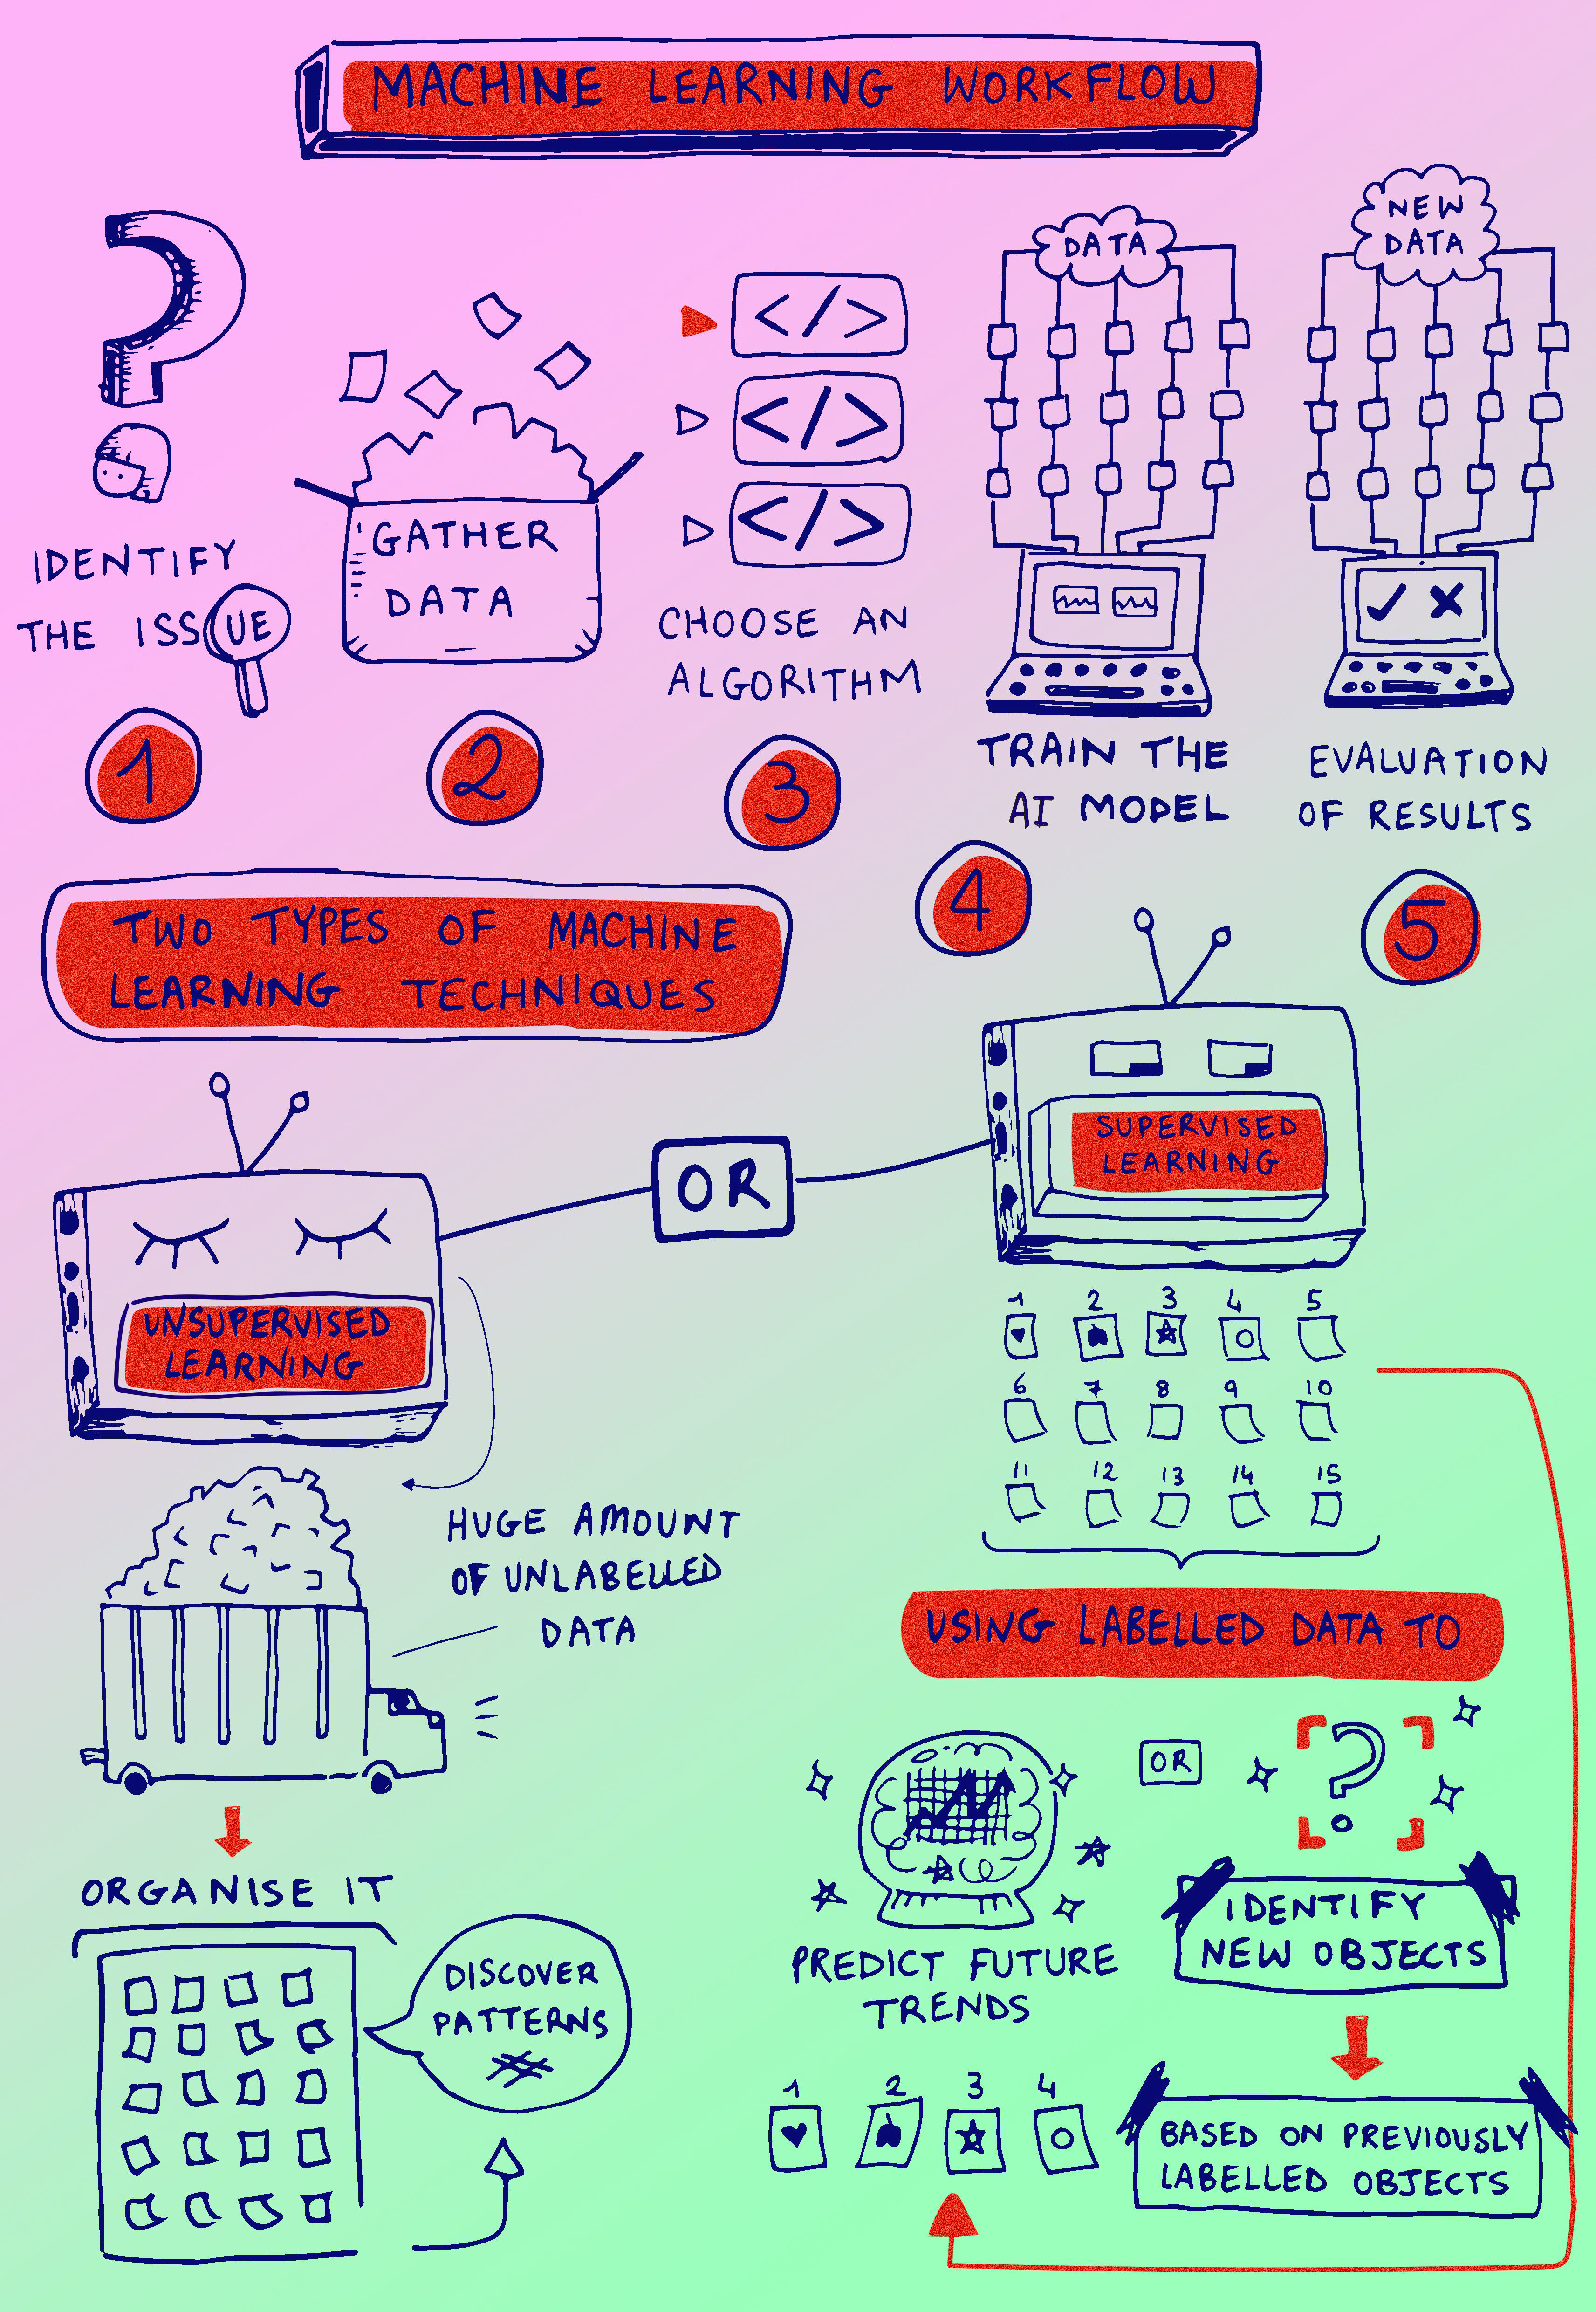 MACHINE LEARNING WORKFLOW
IDENTIFY
THE ISSUE
1
GATHER
DATA
2
</>
</>
</>
CHOOSE AN
ALGORITHM
3
DATA
TRAIN THE
AI MODEL
4
NEW
DATA
EVALUATION
OF RESULTS
5
TWO TYPES OF MACHINE
LEARNING TECHNIQUES
UNSUPERVISED
LEARNING
OR
SUPERVISED
LEARNING
HUGE AMOUNT
OF UNLABELLED
DATA
ORGANISE IT
DISCOVER
PATTERNS
1 2 3 4 5
6 7 8 9 10
11 12 13 14 15
USING LABELLED DATA TO
PREDICT FUTURE
TRENDS
OR
?
IDENTIFY
NEW OBJECTS
BASED ON PREVIOUSLY
LABELLED OBJECTS
1 2 3 4